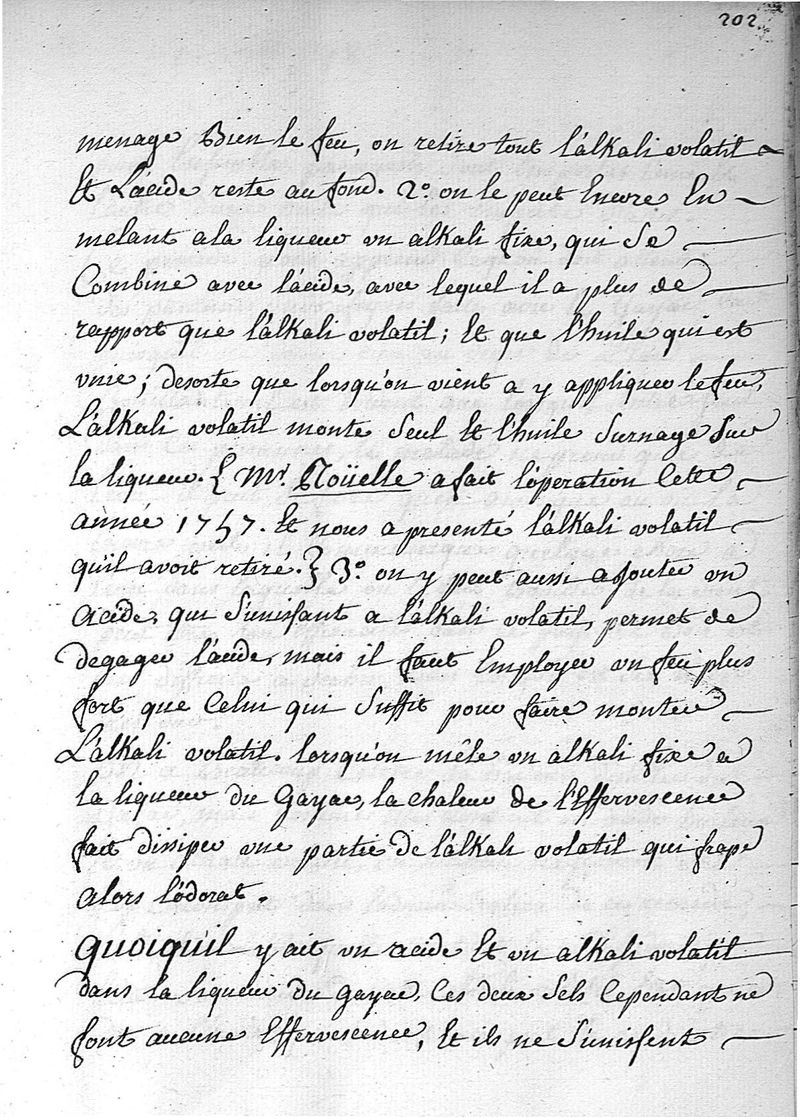 202.
menage Bien le feu, on retire tout l'alkali volatil
Et L'acide reste au fond. 2.° on le peut Encore En
melant a la liqueur un alkali fixe, qui se
Combine avec l'acide, avec lequel il a plus de
rapport que l'alkali volatil; Et que l'huile qui est
unie; desorte que lorsqu'on vient a y appliquer le feu,
L'alkali volatil monte seul Et l'huile surnage sur
la liqueur. { Mr. Roüelle a fait l'operation Cette
année 1757. Et nous a presenté l'alkali volatil
qu'il avoit retiré. } 3.° on y peut aussi ajouter un
acide, qui s'unissant a l'alkali volatil, permet de
degager l'acide, mais il faut Employer un feu plus
fort que Celui qui suffit pour faire monter
L'alkali volatil. lorsqu'on mêle un alkali fixe a
la liqueur du Gayac, la chaleur de l'Effervescence
fait dissiper une partie de l'alkali volatil qui frape
alors l'odorat.
quoiqu'il y ait un acide Et un alkali volatil
dans la liqueur du gayac, Ces deux sels Cependant ne
font aucune Effervescence, Et ils ne s'unissent